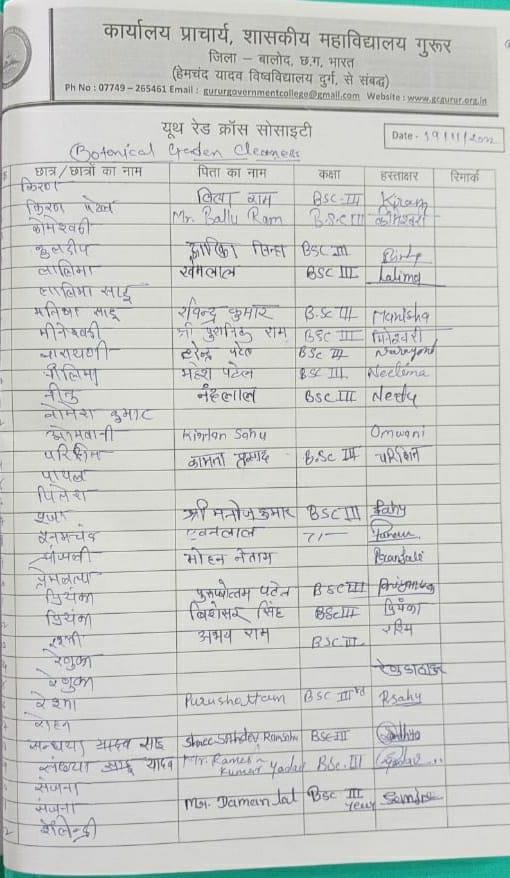 कार्यालय प्राचार्य, शासकीय महाविद्यालय गुरूर
जिला - बालोद, छ.ग, भारत
(हेमचंद यादव विश्वविद्यालय दुर्ग, से संबद्व)
Ph No : 07749 - 265461 Email : gururgovernmentcollege@gmail.com Website : www.gcgurur.org.in
यूथ रेड क्रॉस सोसाइटी
Date -
Botanical Garden Cleaness
छात्र/छात्रों का नाम पिता का नाम कक्षा हस्ताक्षर रिमार्क
किरण
किरण पटेल राम BSC-III Kiram
कोमेश्वरी Mr. Ballu Ram B.SC III कोमेश्वरी
कुलदीप सिन्हा BSC III
लालिमा खेमलाल BSC III Lalima
लालिमा साहू
मनिषा साहू रविन्द्र कुमार B.SC III Manisha
मीनेश्वरी श्री राम BSC III मिनेश्वरी
नारायणी पटेल BSC III
नीलिमा महेश पटेल BSC III Neelima
नीतु नंदलाल BSC III
कुमार
ओमबानी Sahu Omwani
परिक्षित कामता प्रसाद B.SC III परिक्षित
पायल
पिलेश
पूजा श्री मनोज कुमार BSC III
पुनमचंद एवनलाल
प्रांजली मोहन नेताम Pranjali
प्रेमलता
प्रियंका पुरुषोत्तम पटेल BSC III
प्रियंका बिशेसर सिंह BSC III प्रियंका
रश्मी अभय राम BSC III रश्मि
रेणुका
रेणुका
रेश्मा Purushottam BSC III rd Rsahu
रोहन
सन्धया यादव साहू BSC III
संध्या साहू यादव Mr. Ramesh Kumar Yadav BSC. III
संजना
संजना Mr. Daman lal BSC III Year
शैलेन्द्री